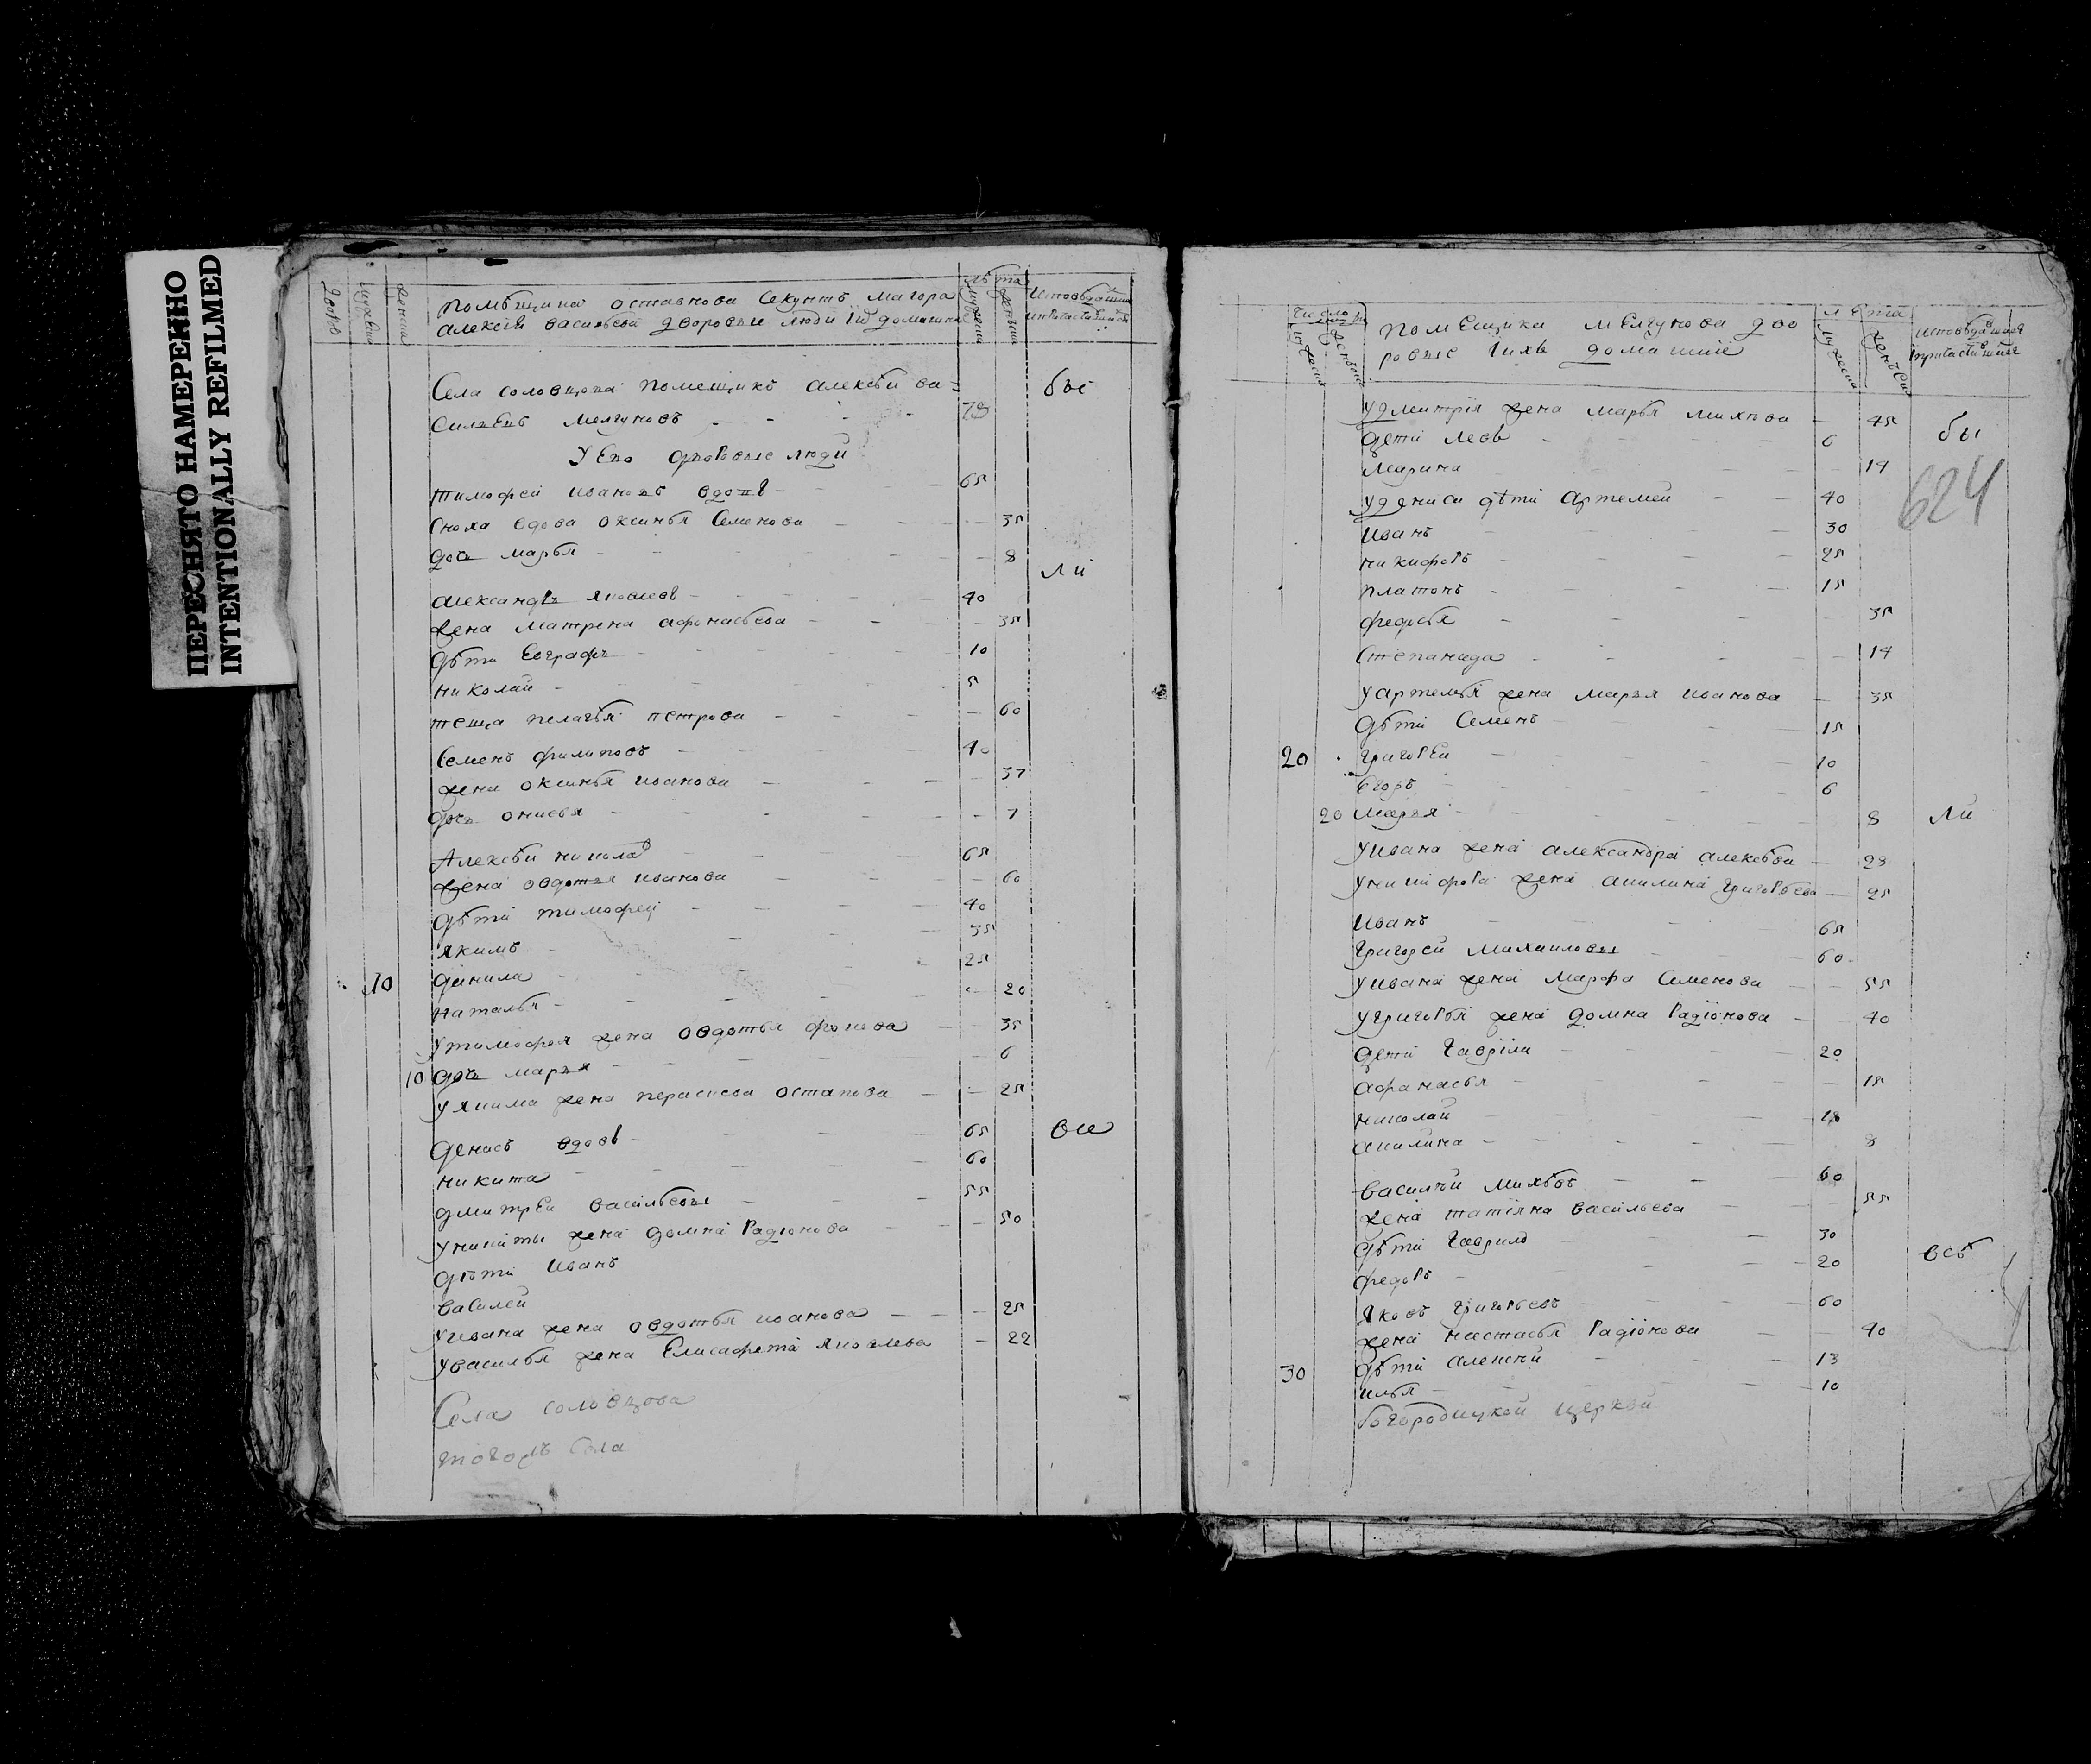 ПЕРЕСНЯТО НАМЕРЕННО
INTENTIONALLY REFILMED
дворовъ
мужеска
женска
помѣщика оставнова секунтъ маиора
алексѣя васильева дворовые люди домашни
лѣта
мужеска
женска
исповѣдавш
Села соловцова помещикъ алексѣи ва=
сильевъ мелгуновъ - - - 78
бы
У его дворовые люди
тимофеи ивановъ вдовъ - 65
сноха вдова оксинья семенова - 35
дочь марья - 8
ли
александръ яковлевъ - 40
жена матрена афонасьева - 35
дѣти евграфъ - 10
николаи - 5
теща пелагѣя петрова - 60
семенъ филиповъ - 40
жена оксинья иванова - 37
дочь онисья - 7
Алексѣи никола - 65
жена овдотья иванова - 60
дѣти тимофеи - 40
якимъ - 35
10 данила - 25
наталья - 20
у тимофея жена овдотья фролова - 35
10 дочь марья - 6
у якима жена парасковья остапова - 25
денисъ вдовъ - 65
вси
никита - 60
дмитреи васильевы - 55
у никиты жена домна радионова - 50
дѣти иванъ
василеи
у ивана жена овдотья иванова - 25
у василья жена елисафета яковлева - 22
Села соловцова
тогожъ села
число
мужеска
женска
помещика мелгунова дво
ровые ихъ домашнiе
лета
мужеска
женска
исповѣдавшiеся
причастившiеся
у дмитрiя жена марья михѣева - 45
дети левъ - 6
бы
марина - 14
624
у дениса дѣти артемеи - 40
иванъ - 30
никифоръ - 25
платонъ - 15
федосья - 35
степанида - 14
у артемья жена марья иванова - 35
дѣти семенъ - 15
20 григореи - 10
егоръ - 6
20 марья - 8
ли
у ивана жена александра алексѣева - 28
у никифора жена акилина григорьева - 25
иванъ - 65
григореи михаиловы - 60
у ивана жена марфа семенова - 55
у григорья жена домна радiонова - 40
дети гаврiла - 20
афанасья - 18
николаи - 18
акилина - 8
василеи михѣевъ - 60
жена татiяна васильева - 55
дѣти гаврило - 30
всѣ
федоръ - 20
яковъ григорьевъ - 60
жена настасья радiонова - 40
30 дѣти алексѣи - 13
илья - 10
богородицкой церкви